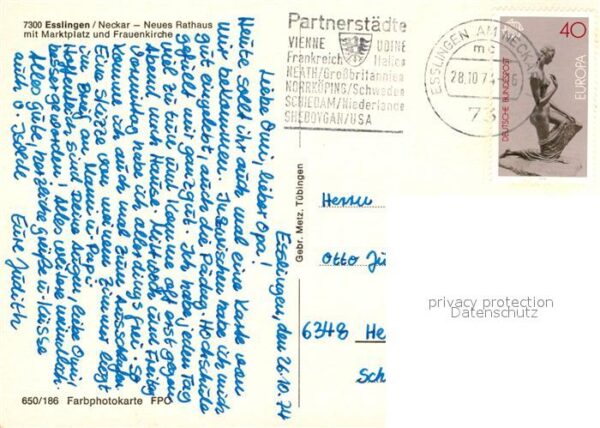 7300 Esslingen / Neckar – Neues Rathaus
mit Marktplatz und Frauenkirche
Partnerstädte
VIENNE UDINE
Frankreich Italien
NEATH/Großbritannien
NORRKÖPING/Schweden
SCHIEDAM/Niederlande
SHEBOYGAN/USA
ESSLINGEN AM NECKAR
mc
28.10.74
73
40
DEUTSCHE BUNDESPOST
EUROPA
Esslingen, den 26.10.74
Liebe Omi, lieber Opa!
Heute sollt ihr auch mal eine Karte von
mir bekommen. Inzwischen habe ich mich
gut eingelebt, auch die Pädag. Hochschule
gefällt mir ganz gut. Ich habe jeden Tag
viel zu tun und komme oft erst gegen
Abend nach Hause. Mittwoch und Freitag
Vormittag habe ich allerdings frei. So
komme ich auch mal zum Ausschlafen.
Eine Skizze von meinem Zimmer liegt
im Brief an Mami u. Papi.
Hoffentlich sind Deine Augen, liebe Omi,
besser geworden! Alles weitere mündlich.
Alles Gute, herzliche Grüße u. Küsse
auch
Eure Judith
Gebr. Metz, Tübingen
Herrn
Otto
6348 He
Sch
privacy protection
Datenschutz
650/186 Farbphotokarte FPC